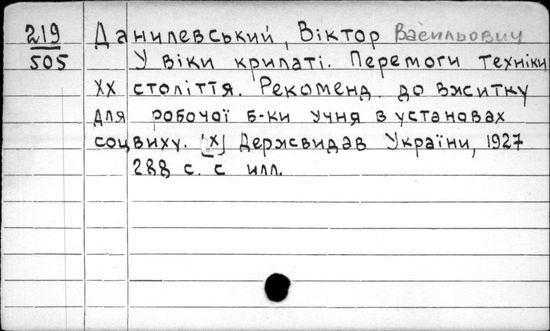 219 Данилевський, Віктор Васильович
505 У віки крилаті. Перемоги техніки
XX століття. Рекоменд. до вжитку
для робочої б-ки учня в установах
соцвиху. [Х] Держвидав України, 1927
288 с. с илл.